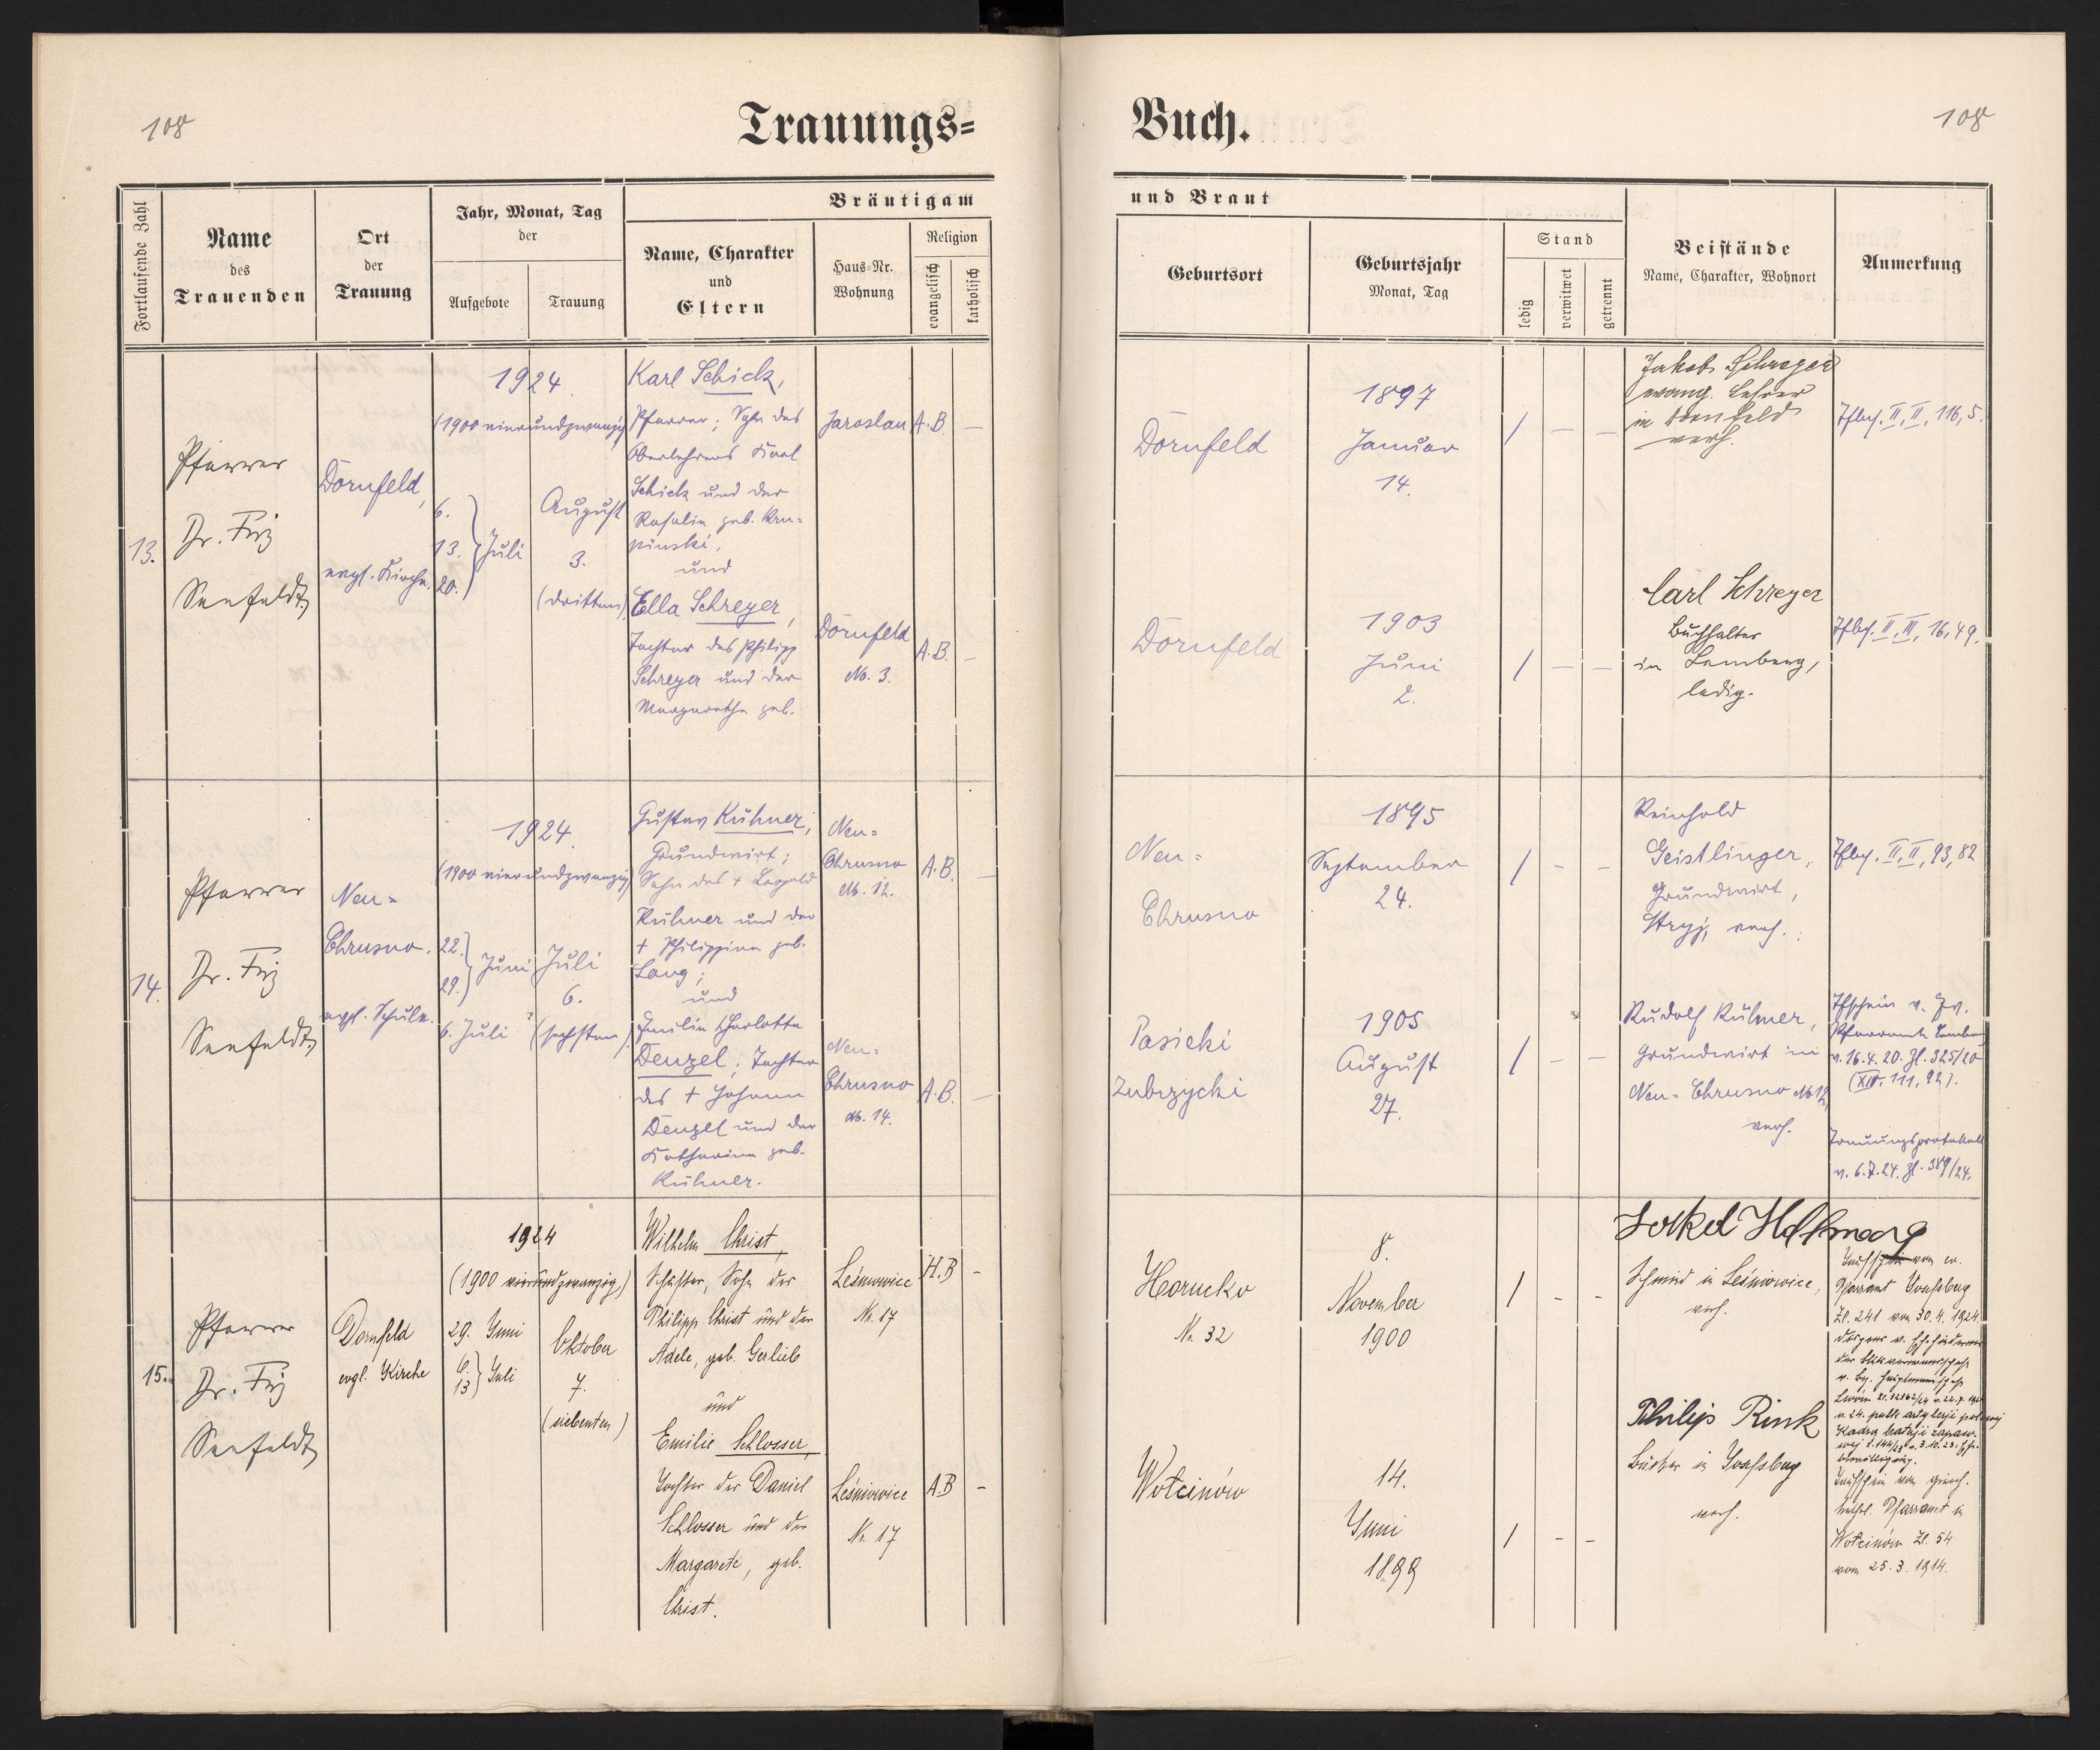 108
Trauungs=
Buch.
108
Fortlaufende Zahl
Name
des
Trauenden
Ort
der
Trauung
Jahr, Monat, Tag
der
Aufgebote
Trauung
Bräutigam
und Braut
Name, Charakter
und
Eltern
Haus=Nr.
Wohnung
Religion
evangelisch
katholisch
Geburtsort
Geburtsjahr
Monat, Tag
Stand
ledig
verwitwet
getrennt
Beistände
Name, Charakter, Wohnort
Anmerkung
13.
Pfarrer
Dr. Friz
Seefeldt
Dornfeld,
evgl. Kirche.
1924
(1900 vierundzwanzig)
6.
13. Juli
20.
August
3.
(dritten)
Karl Schick,
Pfarrer; Sohn des
Oberlehrers Karl
Schick und der
Rosalie geb. Kru=
pinski,
und
Ella Schreyer,
Tochter des Philipp
Schreyer und der
Margarethe geb.
Jaroslau
A.B. —
Dornfeld
No. 3.
A.B. —
Dornfeld
1897
Januar
14.
/ — —
Dornfeld
1903
Juni
2.
/ — —
Jakob Schreyer
evang. Lehrer
in Dornfeld
verh.
Carl Schreyer
Buchhalter
in Lemberg,
ledig.
Tfbch. II, II, 116, 5.
Tfbch. II, III, 16, 49.
14.
Pfarrer
Dr. Friz
Seefeldt
Neu=
Chrusno.
evgl. Schule.
1924
(1900 vierundzwanzig)
22.
29. Juni
6. Juli
Juli
6.
(sechsten)
Gustav Kühner,
Grundwirt;
Sohn des + Leopold
Kühner und der
+ Philippine geb.
Lang;
und
Emilie Charlotte
Denzel; Tochter
des + Johann
Denzel und der
Katharina geb.
Kühner.
Neu=
Chrusno
No. 12.
A.B. —
Neu=
Chrusno
No. 14.
A.B. —
Neu=
Chrusno
1895
September
24.
/ — —
Pasieki
Zubrzycki
1905
August
27.
/ — —
Reinhold
Geistlinger,
Grundwirt,
Stryj, verh.
Rudolf Kühner,
Grundwirt in
Neu=Chrusno No 12,
verh.
Tfbch. II, II, 93, 82
Tfschein v. Ev.
Pfarramte Lemberg
v. 16.4.20. Zl. 325/20
(XIV. 111, 92).
Trauungsprotokoll
v. 6.7.24. Zl. 389/24.
15.
Pfarrer
Dr. Friz
Seefeldt
Dornfeld
evgl. Kirche
1924
(1900 vierundzwanzig)
29. Juni
6.
13 Juli
Oktober
7.
(siebenten)
Wilhelm Christ,
Schuster, Sohn der
Philipp Christ und der
Adele, geb. Gerlieb
und
Emilie Schlosser,
Tochter der Daniel
Schlosser und der
Margarete, geb.
Christ.
Leśniowice
Nr. 17
H.B —
Leśniowice
Nr. 17
A.B —
Horucko
Nr. 32
8.
November
1900
/ — —
Wołcinów
14.
Juni
1899
/ — —
Schmied in Leśniowice,
verh.
Philip Rink
in Josefsberg
verh.
Taufschein vom ev.
Pfarramt Josefsberg
Zl. 241 vom 30.4.1924.
Taufschein vom griech.
kathol. Pfarramt in
Wołcinów Zl. 54
vom 25.3.1914.